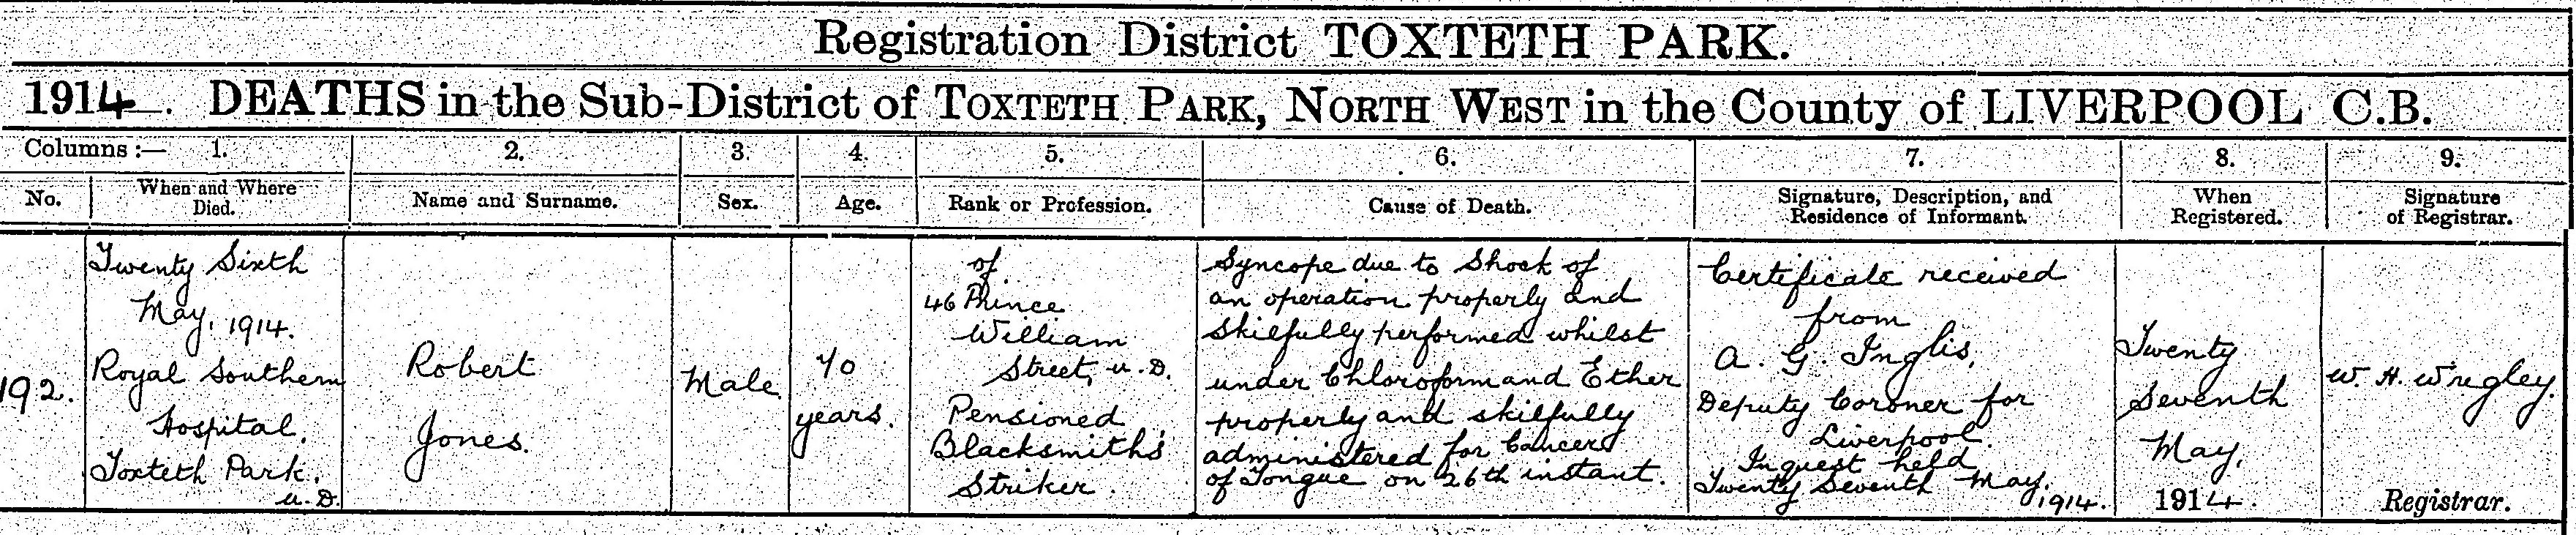 Registration District TOXTETH PARK.
1914. DEATHS in the Sub-District of TOXTETH PARK, NORTH WEST in the County of LIVERPOOL C.B.
Columns :— 1. 2. 3. 4. 5. 6. 7. 8. 9.
No.
When and Where
Died.
Name and Surname.
Sex.
Age.
Rank or Profession.
Cause of Death.
Signature, Description, and
Residence of Informant.
When
Registered.
Signature
of Registrar.
192.
Twenty Sixth
May, 1914.
Royal Southern
Hospital,
Toxteth Park.
U.D.
Robert
Jones.
Male
70
years.
of
46 Prince
William
Street, U.D.
Pensioned
Blacksmith's
Striker.
Syncope due to Shock of
an operation properly and
skilfully performed whilst
under Chloroform and Ether
properly and skilfully
administered for Cancer
of Tongue on 26th instant.
Certificate received
from
A. G. Inglis,
Deputy Coroner for
Liverpool.
Inquest held
Twenty Seventh May,
1914.
Twenty
Seventh
May,
1914.
W. H. Wrigley.
Registrar.